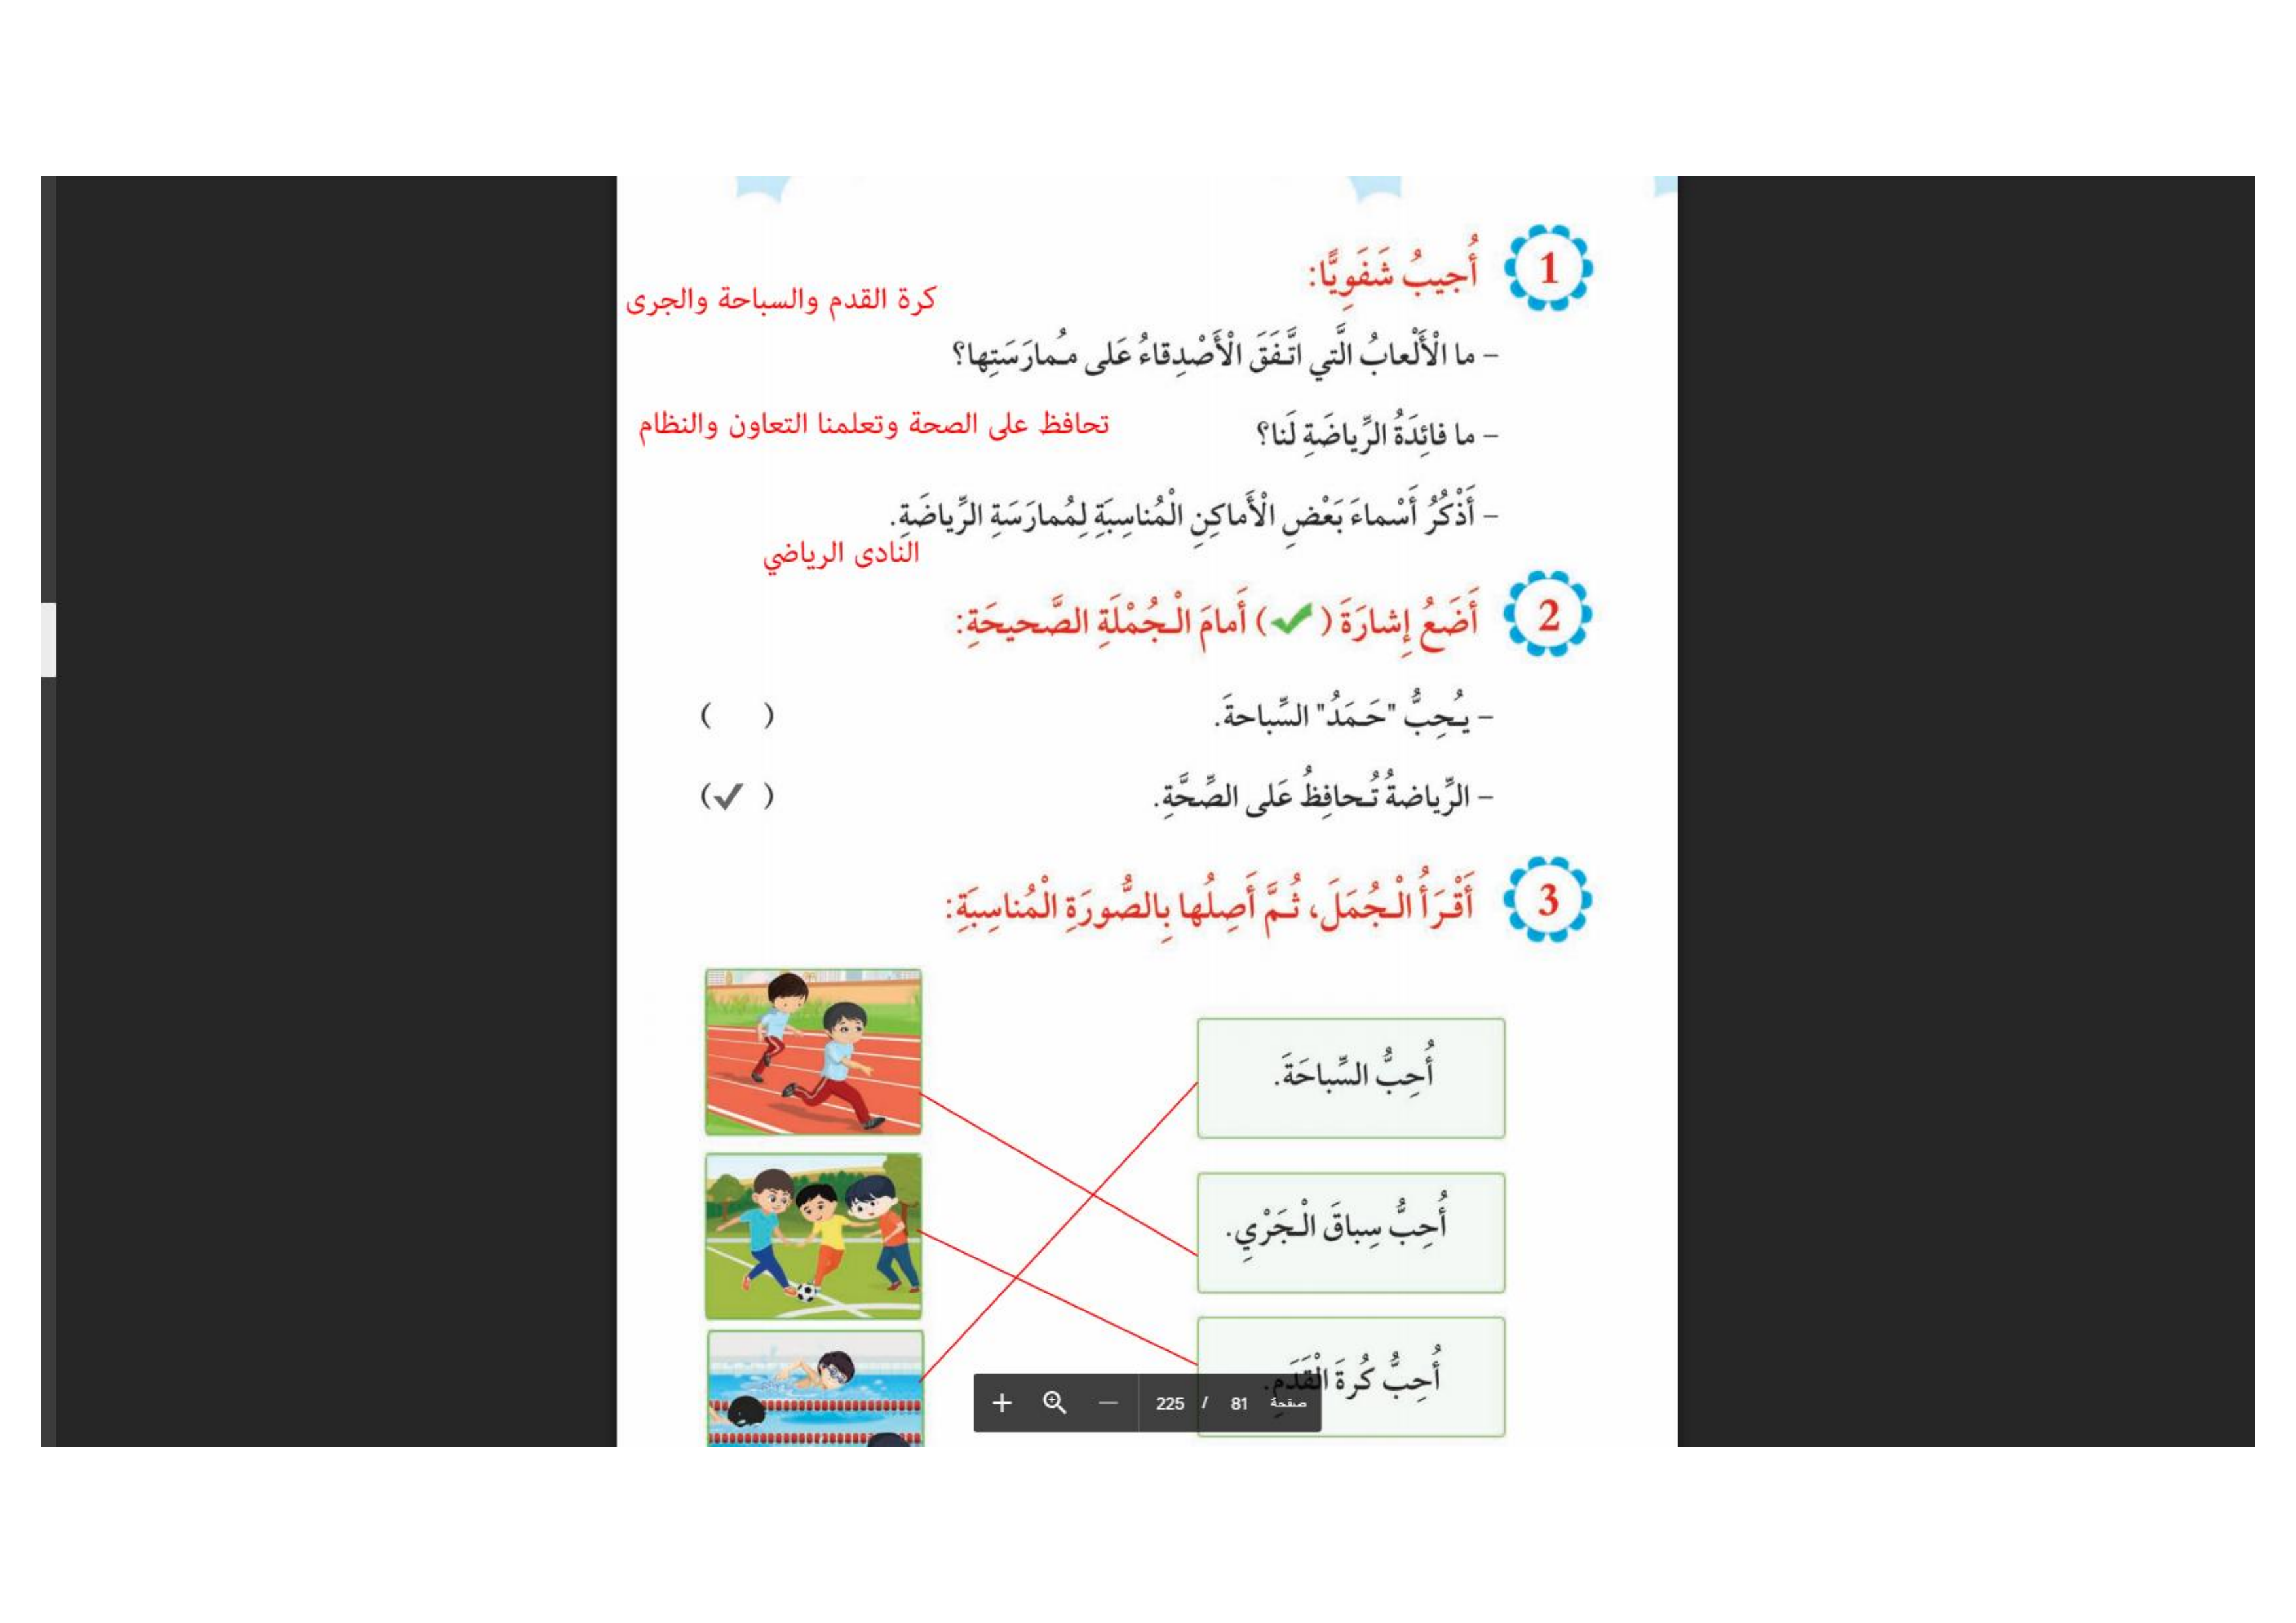 1 أُجيبُ شَفَوِيًّا:
كرة القدم والسباحة والجرى
– ما الْأَلْعابُ الَّتي اتَّفَقَ الْأَصْدِقاءُ عَلى مُمارَسَتِها؟
– ما فائِدَةُ الرِّياضَةِ لَنا؟ تحافظ على الصحة وتعلمنا التعاون والنظام
– أَذْكُرُ أَسْماءَ بَعْضِ الْأَماكِنِ الْمُناسِبَةِ لِمُمارَسَةِ الرِّياضَةِ.
النادى الرياضي
2 أَضَعُ إِشارَةَ (✔) أَمامَ الْجُمْلَةِ الصَّحيحَةِ:
– يُحِبُّ "حَمَدُ" السِّباحةَ. ( )
– الرِّياضةُ تُحافِظُ عَلى الصِّحَّةِ. (✓)
3 أَقْرَأُ الْجُمَلَ، ثُمَّ أَصِلُها بِالصُّورَةِ الْمُناسِبَةِ:
أُحِبُّ السِّباحَةَ.
أُحِبُّ سِباقَ الْجَرْيِ.
أُحِبُّ كُرةَ الْقَدَمِ.
صفحة 81 / 225